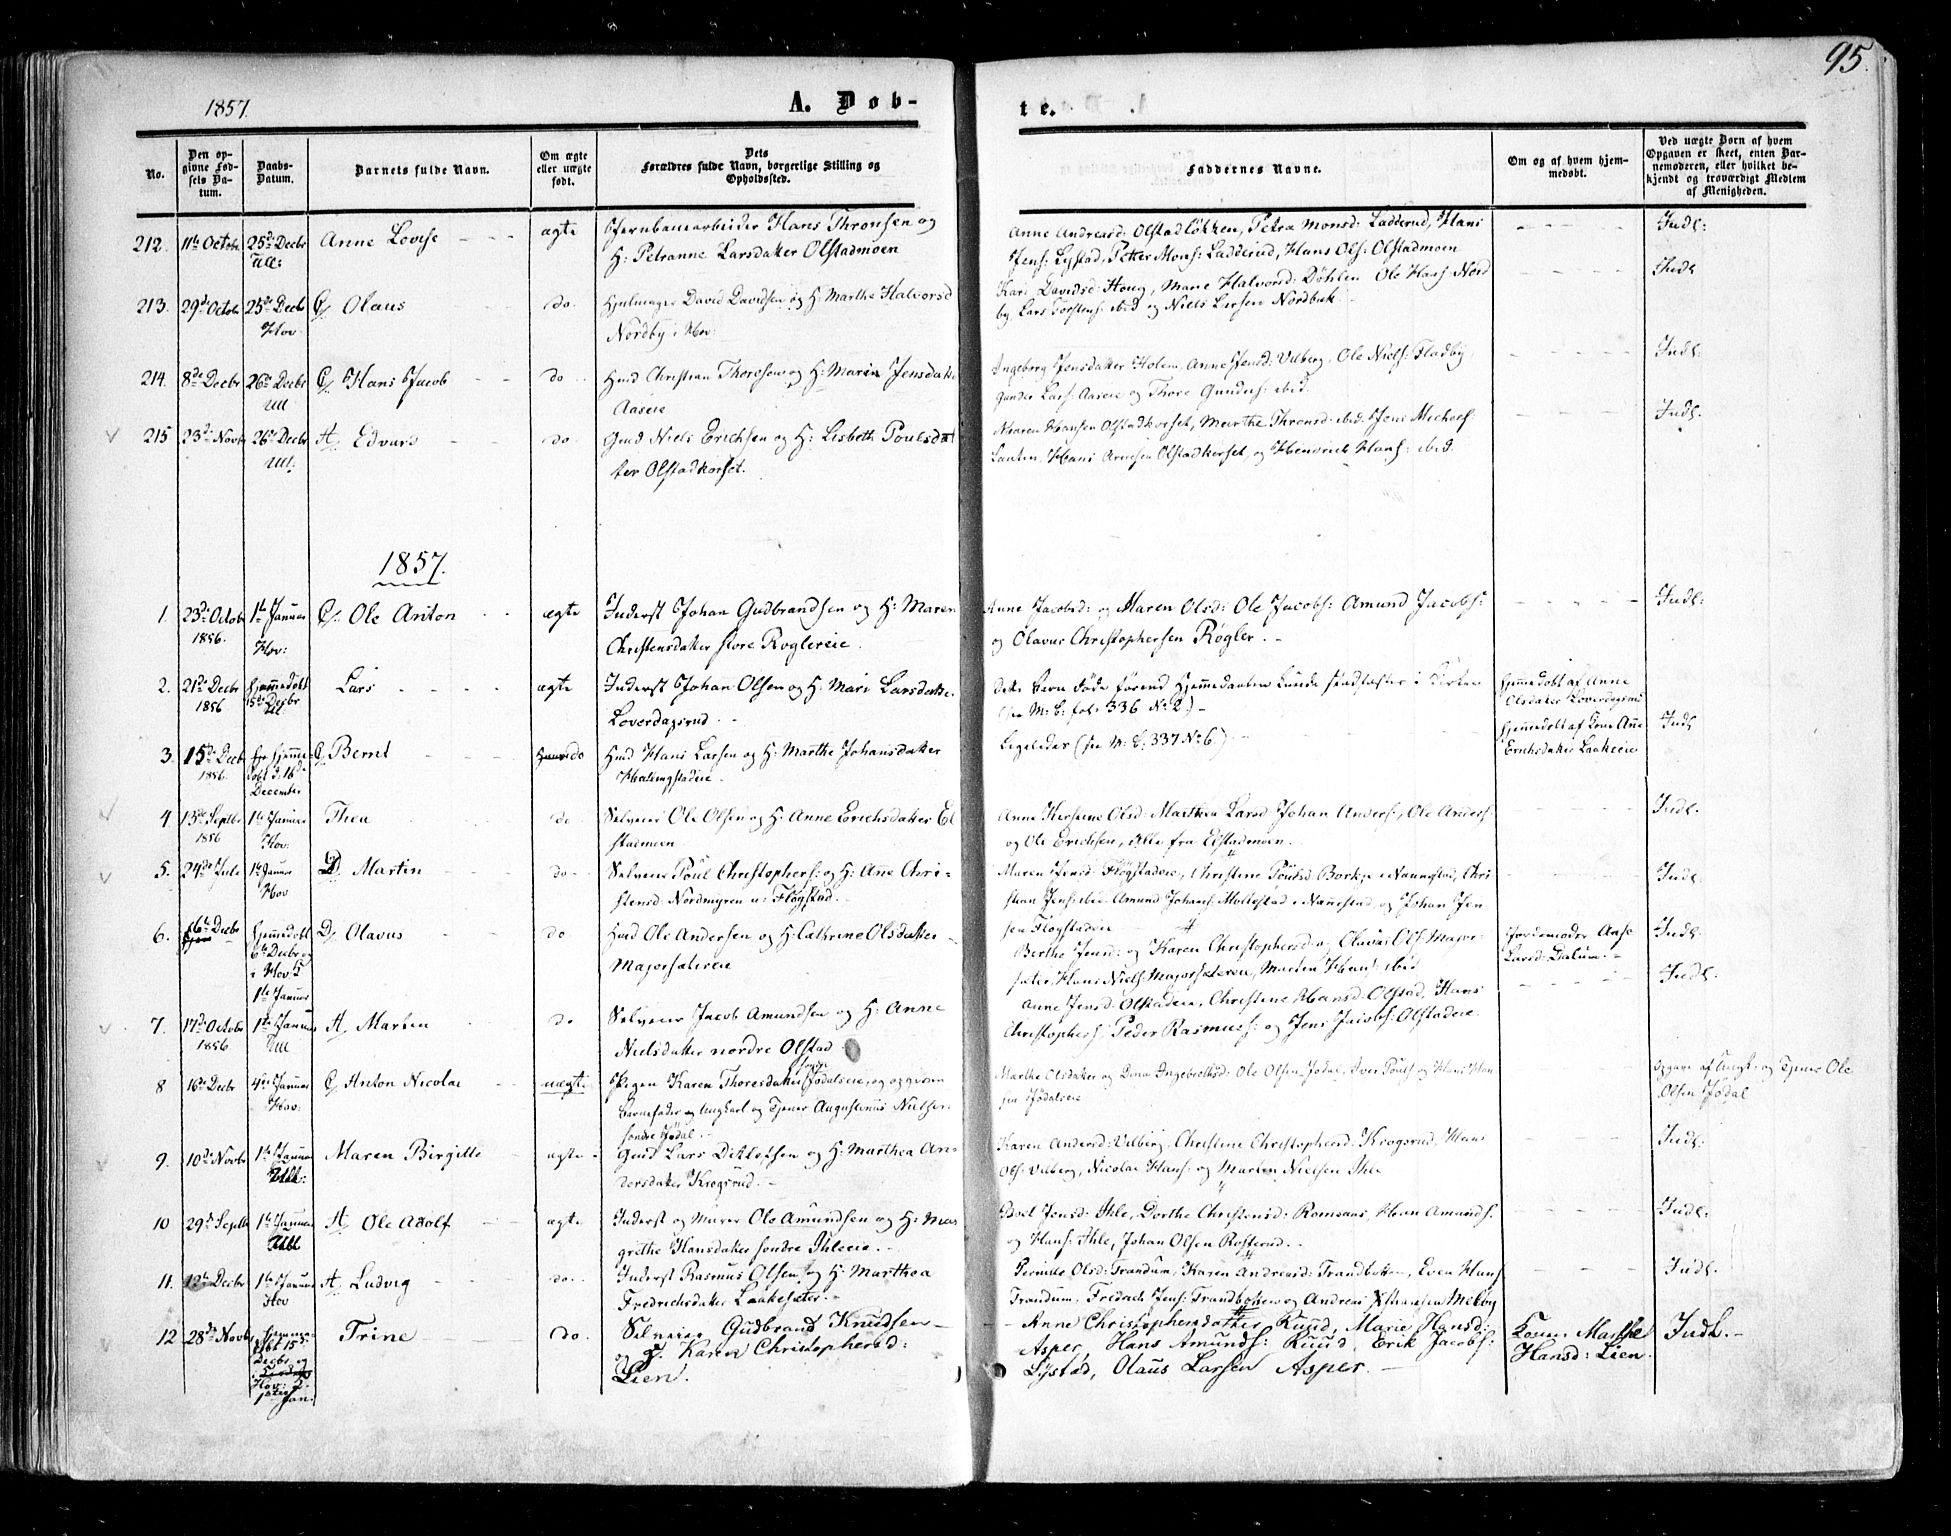 95.
1857.
A. Døb-
te.
No.
Den op-
givne Fød-
sels Da-
tum.
Daabs-
Datum.
Barnets fulde Navn.
Om ægte
eller uægte
født.
Dets
Forældres fulde Navn, borgerlige Stilling og
Opholdssted.
Faddernes Navne.
Om og af hvem hjem-
medøbt.
Ved uægte Børn af hvem
Opgaven er skeet, enten Bar-
nemoderen, eller hvilket be-
kjendt og troværdigt Medlem
af Menigheden.
212. 11te Octobr 25de Decbr Anne Lovise ægte Jernbanearbeider Hans Thronsen og
Ull: H: Petranne Larsdatter Olstadmoen
Anne Andreasd: Olstadløkken, Petra Monsd: Ladderud, Hans
Jens: Lystad, Petter Mons: Ladderud, Hans Ols: Olstadmoen
Indl:
213. 29de Octobr 25de Decbr Olaus do. Hjulmager David Davidsen og H: Marthe Halvorsd
Hov Nordby i Hov:
Kari Davidsd: Houg, Marie Halvorsd: Døhlen Ole Hans: Nord
by, Lars Torstens: ibid og Niels Larsen Nordbak
Indl
214. 8de Decbr 26de Decbr Hans Jacob do Hmd Christian Thoresen og H: Maria Jensdatter
Ull Aaseie
Ingeborg Jensdatter Holem, Anne Jensd: Vilberg, Ole Niels: Fladby,
Gunder Lars: Aaseie og Thore Gunders: ibid.
Indl:
215 23de Novbr 26de Decbr A, Edvars do Gmd Niels Erichsen og H: Lisbeth Poulsdat
Ull. ter Olstadkorset.
Maren Hansen Olstadkorset, Marthe Thronsd: ibid. Jens Michels:
Hans Arnesen Olstadkorset, og Hendrich Hans: ibid.
Indl.
1857.
1. 23de Octobr 1te Januar Ole Anton ægte Inderst Johan Gudbrandsen og H: Maren
1856. Hov: Christensdatter store Roglereie.
Anne Jacobsd: og Maren Olsd: Ole Jacobs: Amund Jacobs:
og Olavus Christophersen Røgler.
Indl:
2. 21de Decbr Hjemmedøbt Lars ægte Inderst Johan Olsen og H: Mari Larsdatter
1856 Loverdagsrud
Dette Barn døde førend Hjemmedaaben kunde stadfæstes i Kirken
(see M: B: fol: 336 No 2.)
Hjemmedøbt af Anne
Olsdatter Loverdagsrud
3. 15de Decbr Bernt do Hmd Hans Larsen og H: Marthe Johansdatter
1856. December
Ligeledes (see M: B: 337 No 6.)
Hjemmedøbt af Kone Anne
Erichsdatter Laakeeie
Indl
4 13de Septbr 1te Januar Thea do Selveier Ole Olsen og H: Anne Erichsdatter El
1856 Hov: stadmoen
Anne Kirstine Olsd: Larsd Johan Anders:, Ole Anders:
og Ole Erichsen, Alle fra Elstadmoen.
Indl.
5. 24de Julii 1te Januar Martin do Selveier Poul Christophers: og H: Anne Chri-
Hov stensd: Nordmyren u: Fløgstad.
Maren Jensd: Fløgstadeie, Christine Poulsd: i Nannestad, Chri
stian Jens: ibid. Amund Johans: Mollestad i Nannestad, og Johan Jen
sen Fløgstadeie
Indl.
6. 6te Decbr Hjemmedøbt D, Olavus do Hmd Ole Andersen og H: Cathrine Olsdatter
6te Decbr og Majorsætereie
i Hov
1te Januar
Berthe Jensd: og Karen Christophersd: og Olavus Ols: Major-
sæter, Hans Niels: Majorsæteren, Martin Hans: ibid
Jordemoder Anne
Larsd: Dalum.
Indl.
7. 17de Octobr 1te Januar A, Marten do Selveier Jacob Amundsen og H: Anne
1856 Ull Nielsdatter nordre Olstad
Anne Jensd: Olstadeie, Christine Hansd: Olstad, Hans
Christophers:, Peder Rasmus: og Jens Jacobs: Olstadeie.
Indl:
8 16de Decbr 4de Januar Anton Nicolai uægte Pigen Karen Thoresdatter Jødalseie, og opgiven
Hov: Barnefader og Ungkarl og Tjener Augustinus Nielsen
søndre Jødal.
Marthe Olsdatter og Dina Ingebretsd: Ole Olsen Jødal, Iver Pouls: og Hans Han
sen Jødalseie
Opgave af Ungk: og Tjener Ole
Olsen Jødal
9. 10de Novbr 1te Januar Maren Birgitte ægte Gmd Lars Ditlefsen og H: Marthea An-
dersdatter Krogsrud.
Karen Andersd: Vilberg, Christine Christophersd: Krogsrud, Hans
Ols: Vilberg, Nicolai Hans: og Marten Nielsen Ihle
Indl:
10 29de Septbr 1te Januar A, Ole Adolf ægte Inderst og Murer Ole Amundsen og H: Mar
grethe Hansdatter søndre Ihleeie.
Jensd: Ihle, Dorthe Christensd: Romsaas, Amunds:
og Hans: Ihle, Johan Olsen
Indl:
11. 12te Decbr 1te Januar A, Ludvig do. Inderst Rasmus Olsen og H: Marthea
Hov Fredrichsdatter Laakesæter.
Pernille Olsd: Trandum, Karen Andreasd: Trandbakken, Even Hans:
Trandum, Fredrich Jens: Trandbakken og Andreas Johansen Melby
Indl.
12 28de Novbr Trine do. Selveier Gudbrand Knudsen
og H. Karen Christophersd:
Lien.
Hov:
Jan.
Anne Christophersdatter Ruud, Marie Hansd:
Asper, Hans Amunds: Ruud, Erik Jacobs:
Lystad, Olaus Larsen Asper.
Konen Marthe
Hansd: Lien.
Indl.